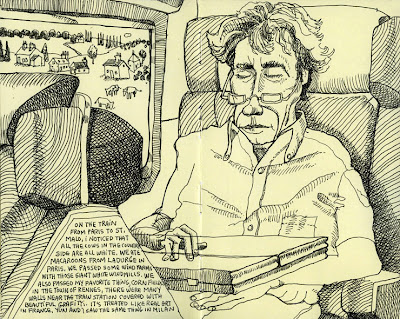 ON THE TRAIN
FROM PARIS TO ST.
MALO, I NOTICED THAT
ALL THE COWS IN THE COUNTRY
SIDE ARE ALL WHITE. WE ATE
MACAROONS FROM LADURGE IN
PARIS. WE PASSED SOME WIND FARMS
WITH THOSE GIANT WHITE WINDMILLS. WE
ALSO PASSED MY FAVORITE THING, CORN FIELDS.
IN THE TOWN OF RENNES, THERE WERE MANY
WALLS NEAR THE TRAIN STATION COVERED WITH
BEAUTIFUL GRAFFITI. IT'S TREATED LIKE REAL ART
IN FRANCE, TOM AND I SAW THE SAME THING IN MILAN